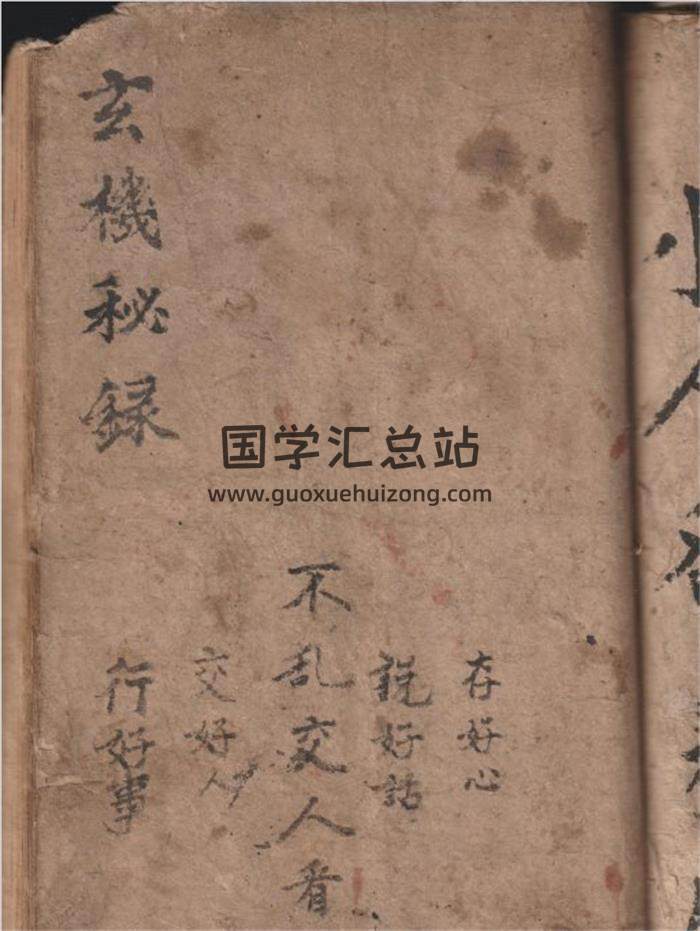 玄機秘録
存好心
説好話
不乱交人看
交好人
行好事
国学汇总站
www.guoxuehuizong.com